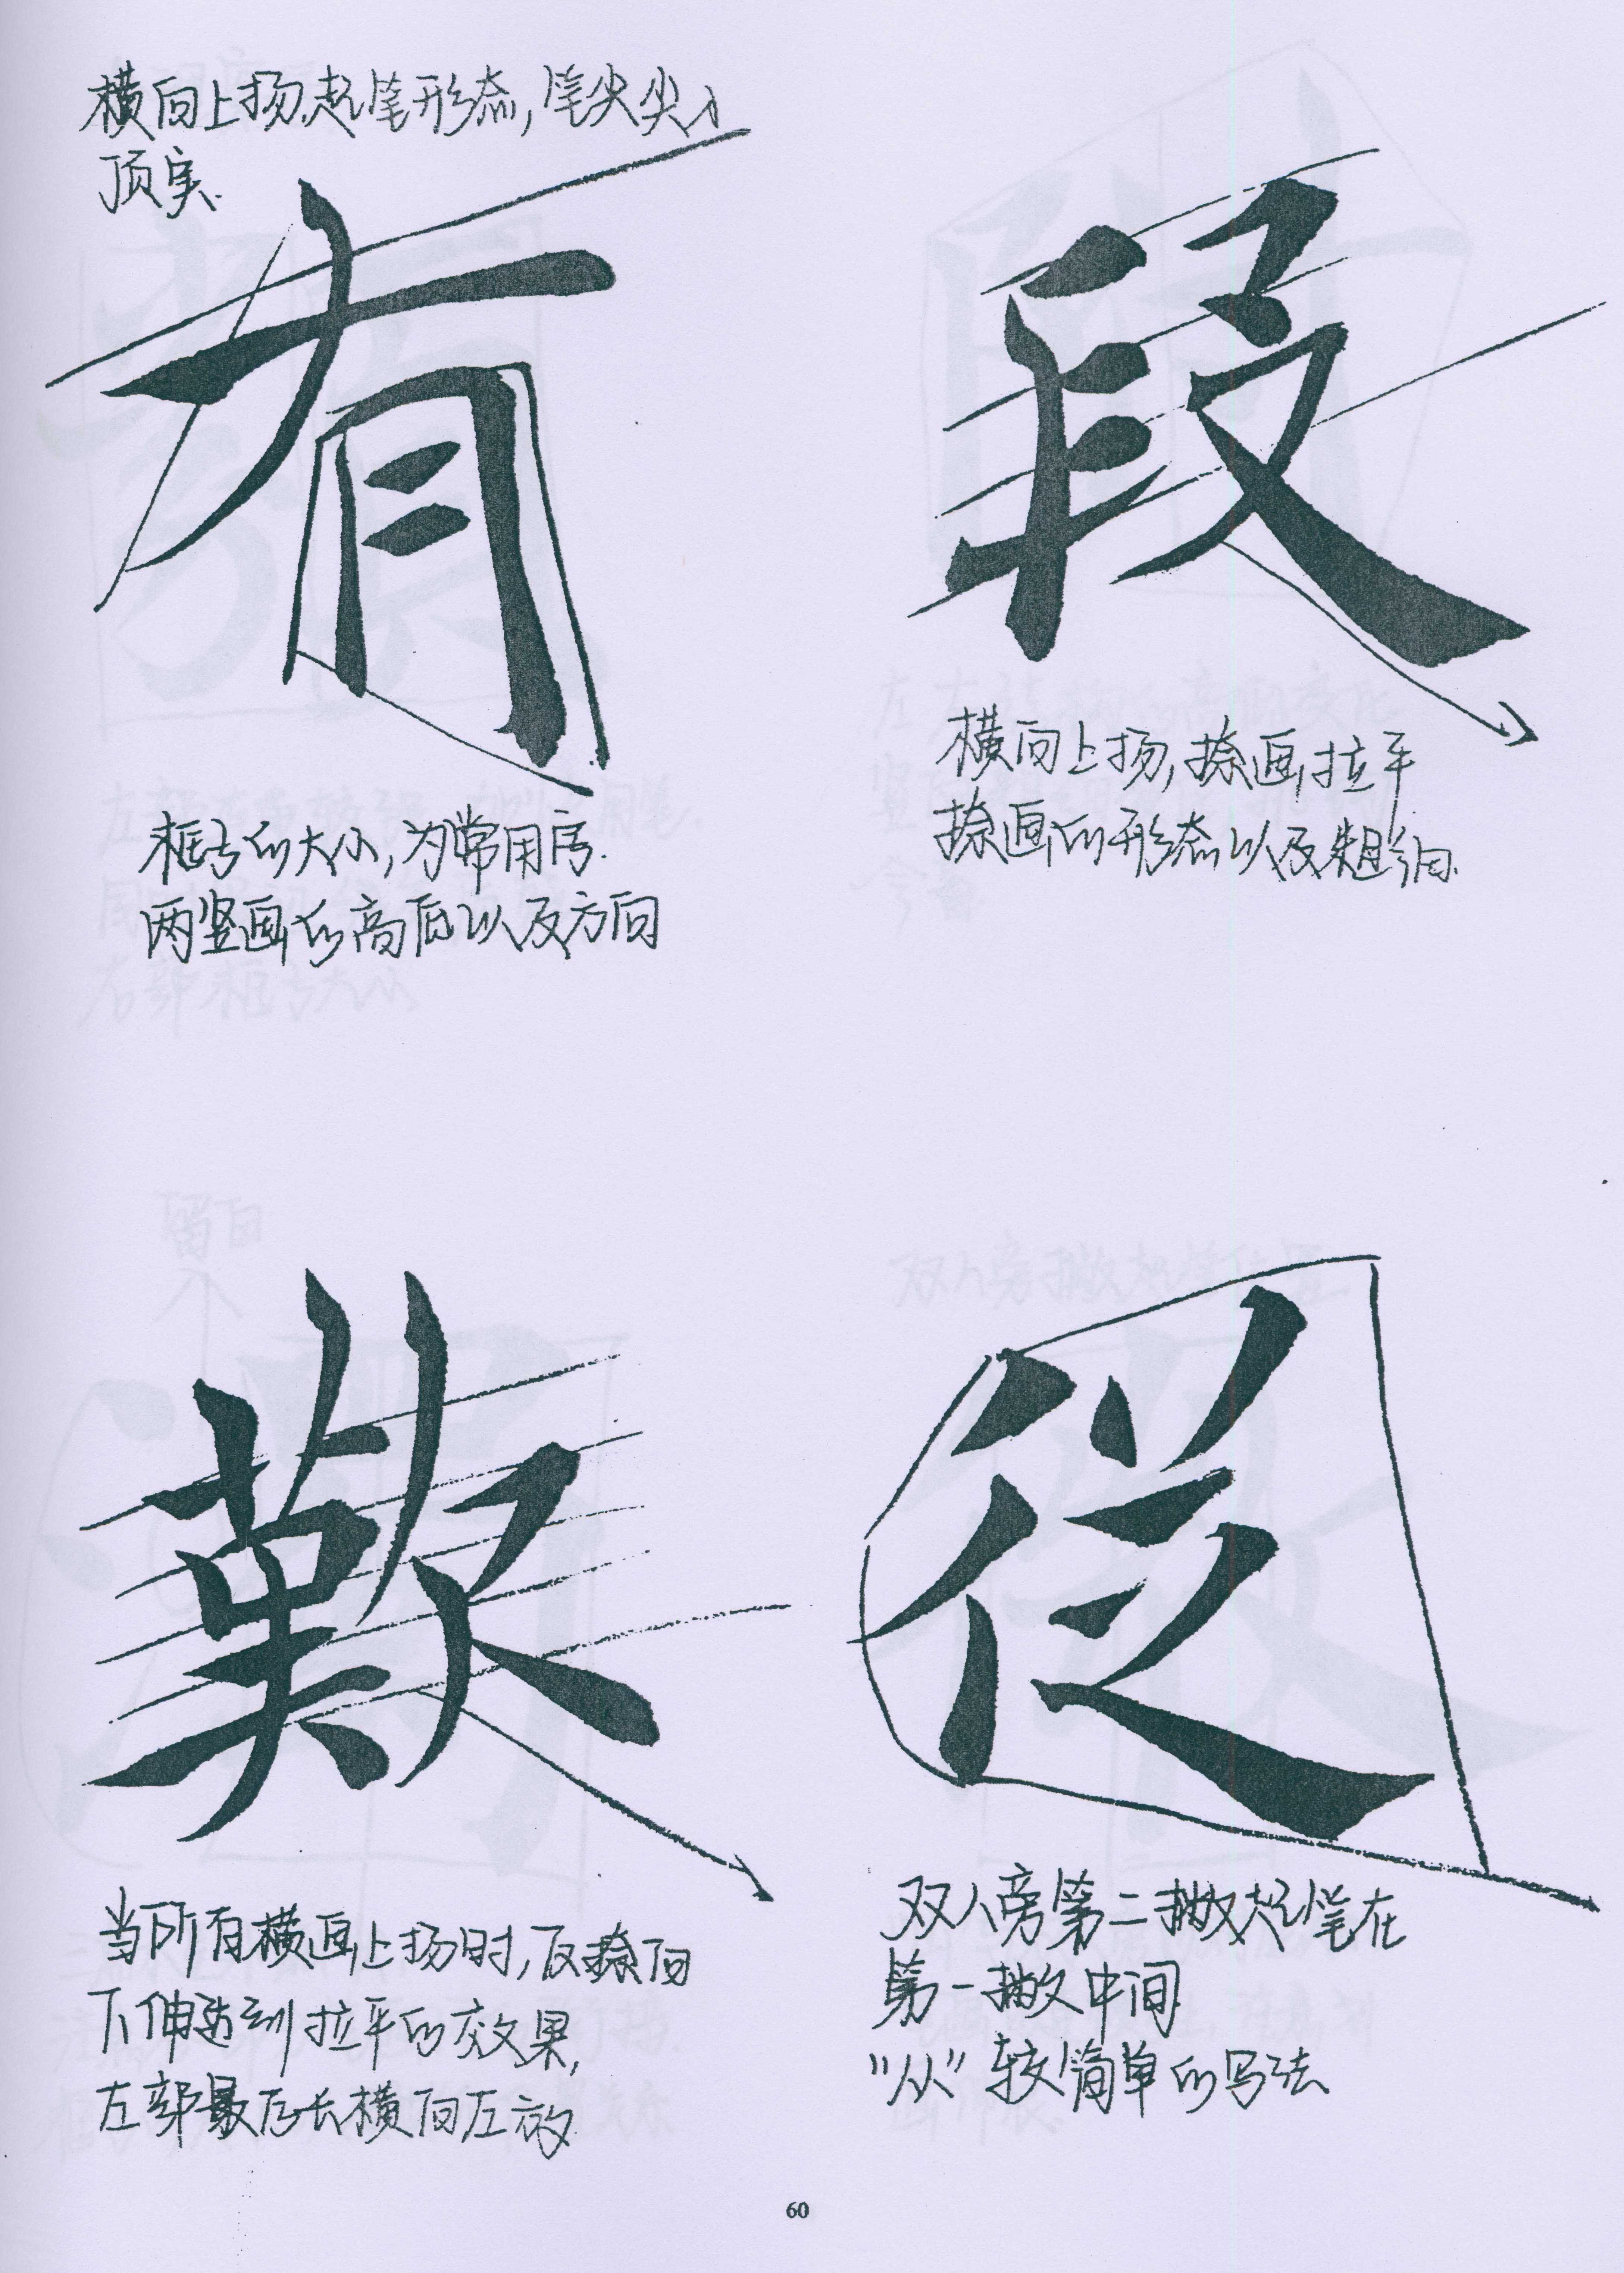 横向上扬,起笔形态,笔尖尖入
顶实.
有
框子的大小,为常用字.
两竖画的高低以及方向
段
横向上扬,捺画拉平
捺画的形态以及粗细.
歎
当所有横画上扬时,反捺向
下伸达到拉平的效果,
左部最后长横向左放
從
双人旁第二撇起笔在
第一撇中间
“从”较简单的写法
60